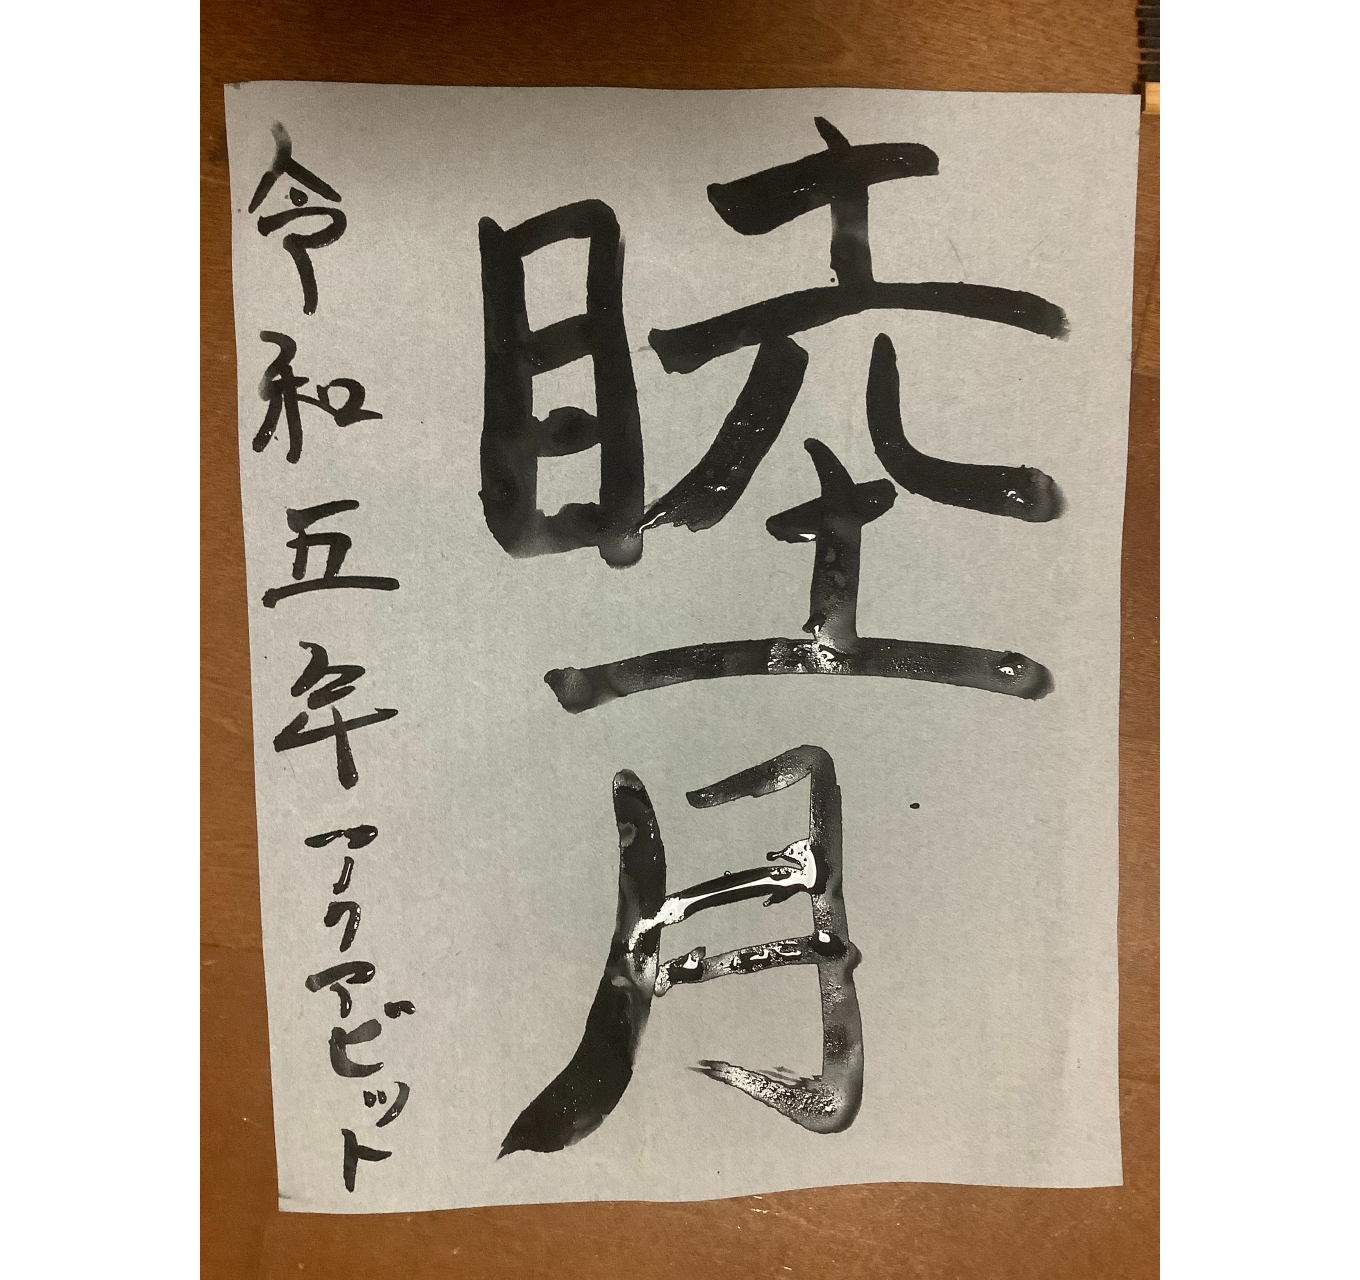 睦月
令和五年アクアビット